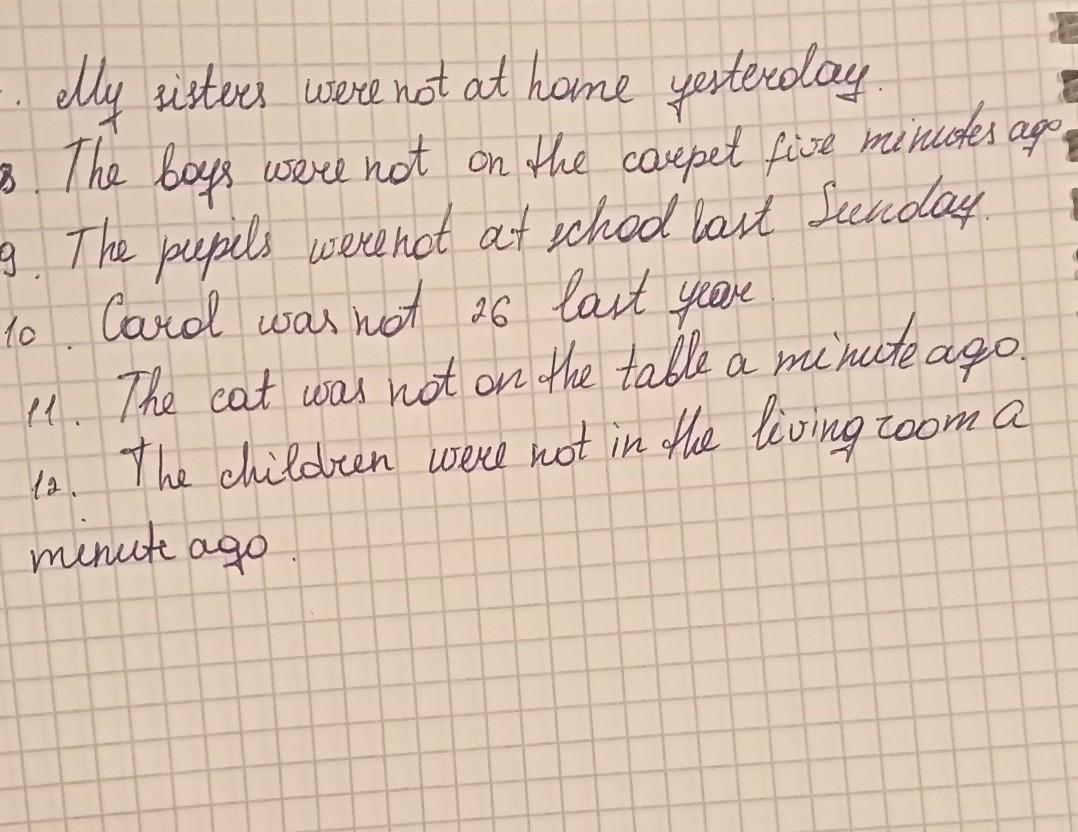 . My sisters were not at home yesterday.
8. The boys were not on the carpet five minutes ago
9. The pupils were not at school last Sunday.
10. Carol was not 26 last year.
11. The cat was not on the table a minute ago.
12. The children were not in the living room a
minute ago.